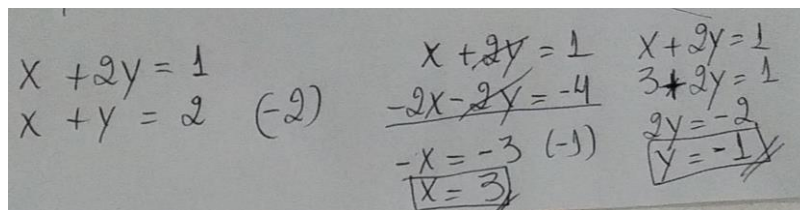 x + 2y = 1
x + y = 2 (-2)
x + 2y = 1
-2x - 2y = -4
-x = -3 (-1)
x = 3
x + 2y = 1
3 + 2y = 1
2y = -2
y = -1